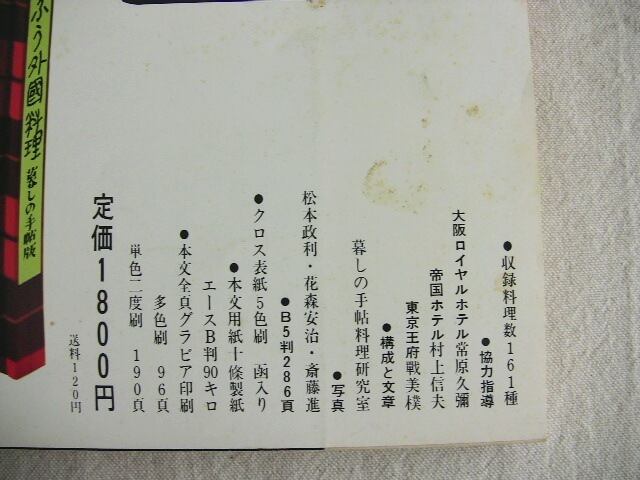 ●収録料理数161種
●協力指導
大阪ロイヤルホテル常原久彌
帝国ホテル村上信夫
東京王府戰美樸
●構成と文章
暮しの手帖料理研究室
●写真
松本政利・花森安治・斎藤進
●B5判286頁
●クロス表紙5色刷 函入り
●本文用紙十條製紙
エースB判90キロ
●本文全頁グラビア印刷
多色刷 96頁
単色二度刷 190頁
定価1800円
送料120円
ふう外國料理
暮しの手帖版